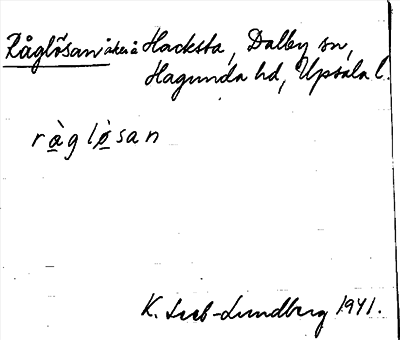 Råglösan åker å Hacksta, Dalby sn,
Hagunda hd, Upsala l.
ràglòsan
K. Lieb-Lundberg 1941.